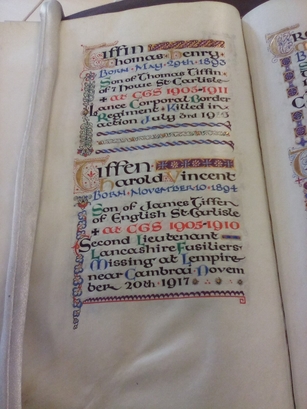 Tiffin
Thomas Henry.
Born·May·29th·1893
Son of Thomas Tiffin
of 7 Howe St Carlisle
at CGS 1905-1911
Lance Corporal Border
Regiment Killed in
action July 3rd
Tiffen
Harold Vincent
Born·November·10·1894
Son of James Tiffen
of English St·Carlisle
at CGS 1905-1910
Second Lieutenant
Lancashire Fusiliers
Missing at Lempire
near Cambrai Novem
ber 20th 1917